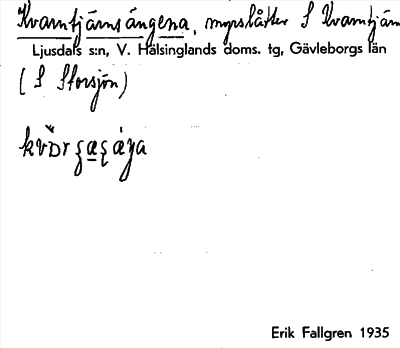 Kvarntjärnsängena, myrslåtter S Kvarntjärn
Ljusdals s:n, V. Hälsinglands doms. tg, Gävleborgs län
(S Storsjön)
Erik Fallgren 1935